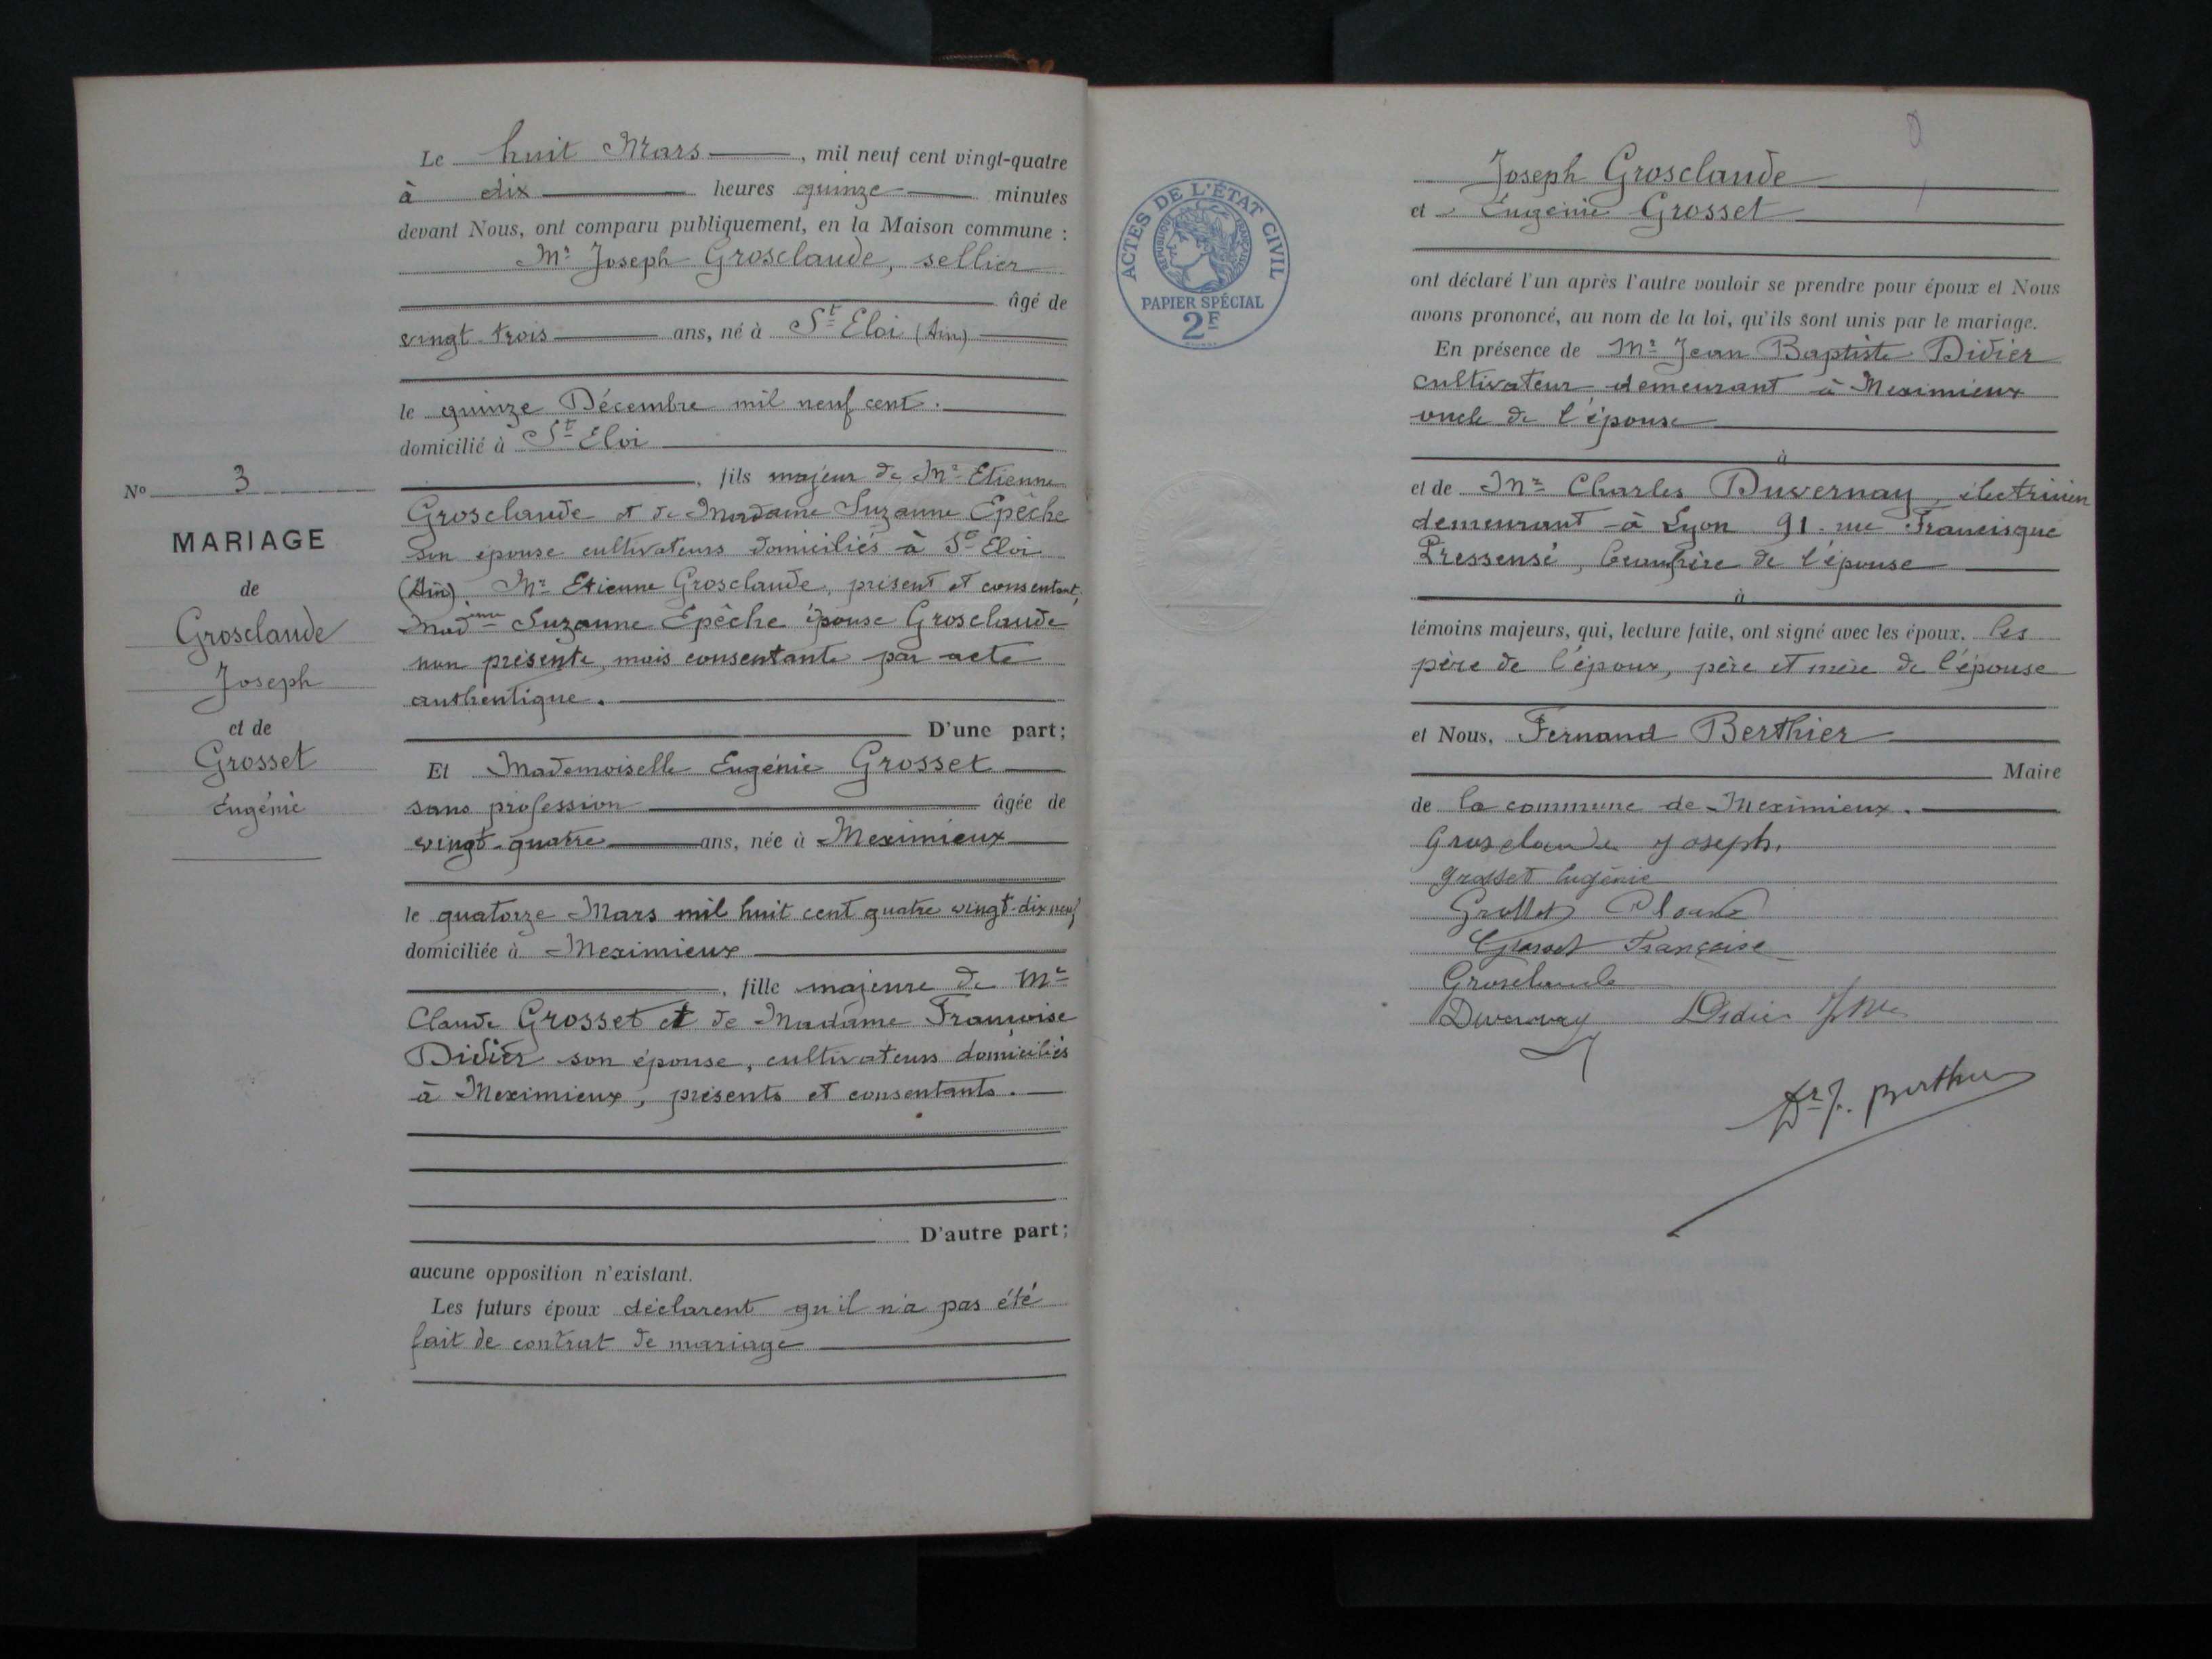 Le huit Mars, mil neuf cent vingt-quatre
à dix heures quinze minutes
devant Nous, ont comparu publiquement, en la Maison commune :
Mr Joseph Grosclaude, sellier
âgé de
vingt trois ans, né à St Eloi (Ain)
le quinze Décembre mil neuf cent.
domicilié à St Eloi
, fils majeur de Mr Etienne
Grosclaude et de Madame Suzanne Epêche
son épouse cultivateurs domiciliés à St Eloi
(Ain) Mr Etienne Grosclaude, présent et consentant,
Madme Suzanne Epêche épouse Grosclaude
non présente, mais consentante par acte
authentique.
D'une part;
Et Mademoiselle Eugénie Grosset
sans profession âgée de
vingt-quatre ans, née à Meximieux
le quatorze Mars mil huit cent quatre vingt-dix neuf
domiciliée à Meximieux
, fille majeure de Mr
Claude Grosset et de Madame Françoise
Didier son épouse, cultivateurs domiciliés
à Meximieux, présents et consentants.
D'autre part;
aucune opposition n'existant.
Les futurs époux déclarent qu'il n'a pas été
fait de contrat de mariage
No 3
MARIAGE
de
Grosclaude
Joseph
et de
Grosset
Eugénie
ACTES DE L'ÉTAT CIVIL
RÉPUBLIQUE FRANÇAISE
PAPIER SPÉCIAL
2F
Joseph Grosclaude
et Eugénie Grosset
ont déclaré l'un après l'autre vouloir se prendre pour époux et Nous
avons prononcé, au nom de la loi, qu'ils sont unis par le mariage.
En présence de Mr Jean Baptiste Didier
cultivateur demeurant à Meximieux
oncle de l'épouse
à
et de Mr Charles Duvernay, électricien
demeurant à Lyon 91. rue Francisque
Pressensé, beaufrère de l'épouse
à
témoins majeurs, qui, lecture faite, ont signé avec les époux, les
père de l'époux, père et mère de l'épouse
et Nous, Fernand Berthier
Maire
de la commune de Meximieux.
Grosclaude Joseph.
Grosset Eugénie
Grosset Claude
Grosset Françoise
Grosclaude
Duvernay Didier
Dr F. Berthier